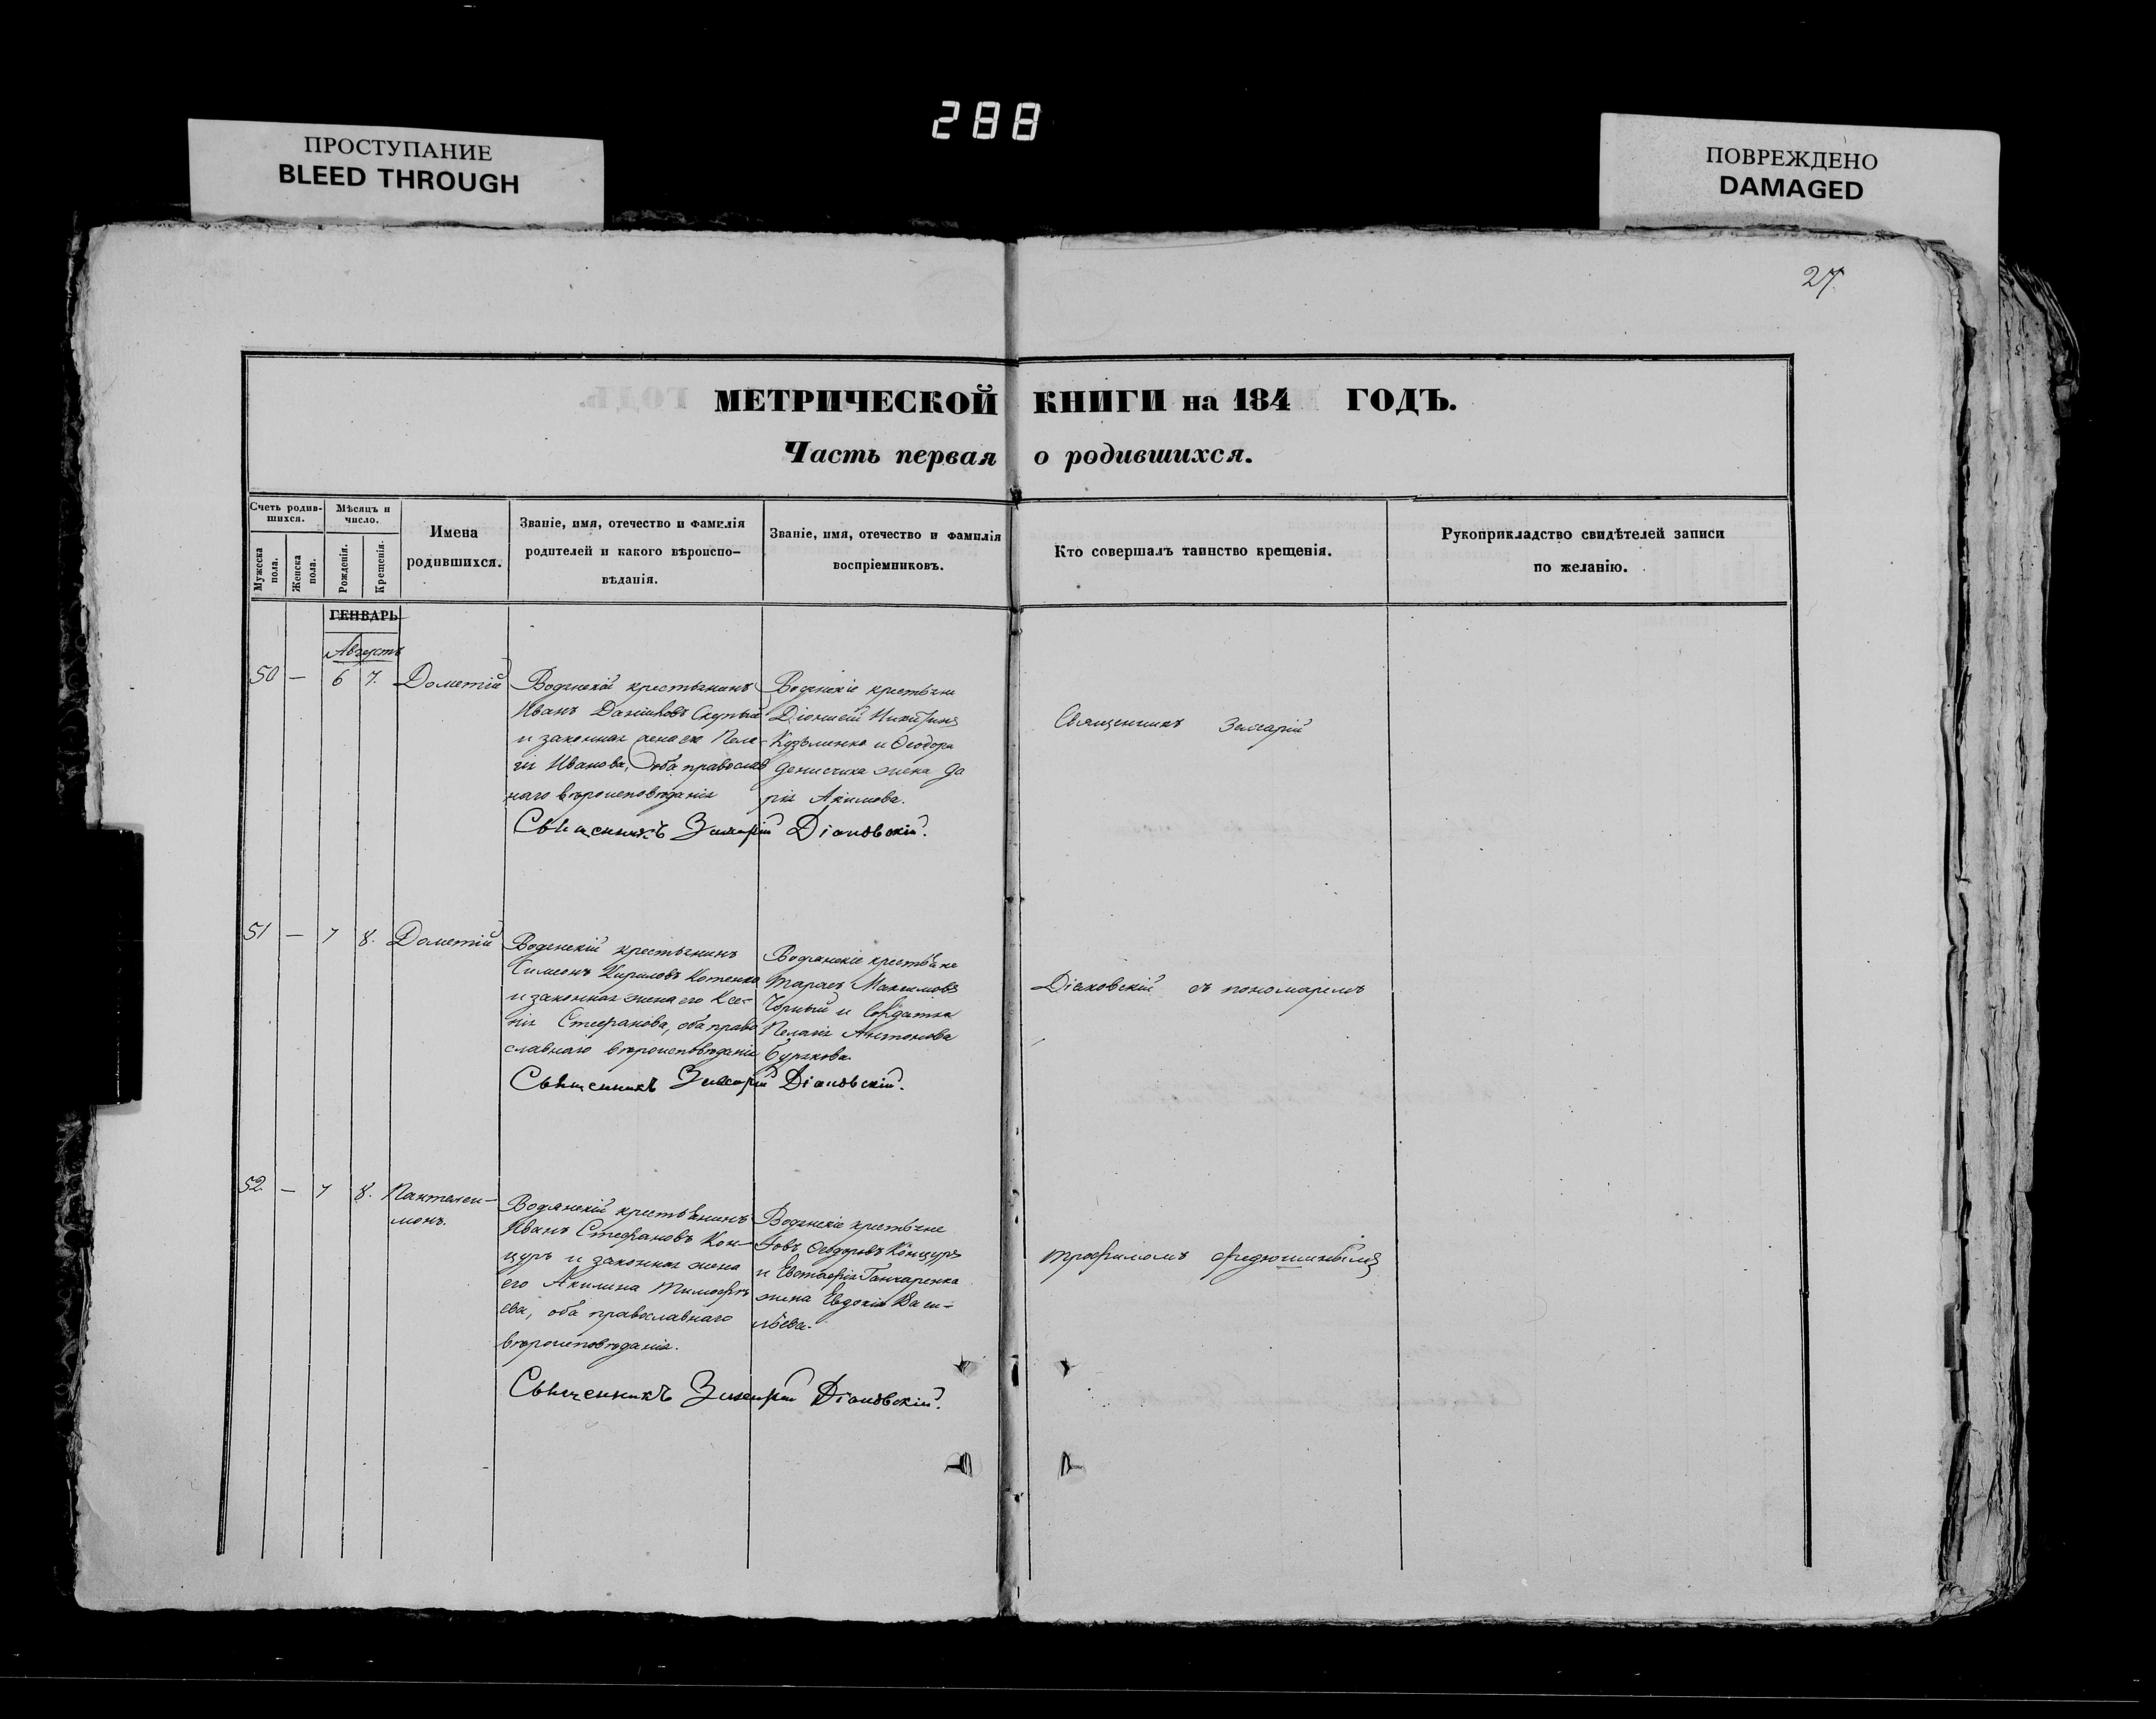 288
ПРОСТУПАНИЕ
BLEED THROUGH
ПОВРЕЖДЕНО
DAMAGED
27
МЕТРИЧЕСКОЙ КНИГИ на 184 ГОДЪ.
Часть первая о родившихся.
Счетъ родив-
шихся.
Мужеска пола.
Женска пола.
Мѣсяцъ и
число.
Рожденія.
Крещенія.
Имена
родившихся.
Званіе, имя, отечество и фамилія
родителей и какого вѣроиспо-
вѣданія.
Званіе, имя, отечество и фамилія
воспріемниковъ.
Кто совершалъ таинство крещенія.
Рукоприкладство свидѣтелей записи
по желанію.
ГЕНВАРЬ
Августъ
50 — 6 7. Дометій
Водянскій крестьянинъ
Иванъ Даниловъ
и законная жена его Пела-
гія Иванова, оба православ
наго вѣроисповѣданія
Водянскіе крестьяне
Діонисій Никитинъ
Кузьминко и Ѳеодора
Денисика жена Да
рія Акимова.
Священникъ Діаковскій.
Священникъ
51 — 7 8. Дометій
Водянскій крестьянинъ
Симеонъ Кириловъ Котенко
и законная жена его Ксе-
нія Стефанова, оба право
славнаго вѣроисповѣданія
Водянскіе крестьяне
Тарасъ Максимовъ
Чорный и Солдатка
Пелагія Антонова
Бурякова.
Священникъ Діаковскій.
Діаковскій съ пономаремъ
52 — 7 8. Пантелеи-
монъ.
Водянскій крестьянинъ
Иванъ Стефановъ Кон-
цуръ и законная жена
его Акилина Тимофѣ
ева, оба православнаго
вѣроисповѣданія.
Водянскіе крестьяне
Іовъ Ѳеодоровъ Концуръ
и Евстафія Ганчаренка
жена Евдокія Васи-
льева.
Священникъ Діаковскій.
Трофимомъ Федюшинымъ